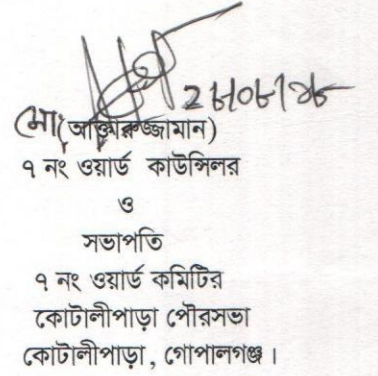 মো(আক্তারুজ্জামান)
৭ নং ওয়ার্ড কাউন্সিলর
ও
সভাপতি
৭ নং ওয়ার্ড কমিটির
কোটালীপাড়া পৌরসভা
কোটালীপাড়া, গোপালগঞ্জ।